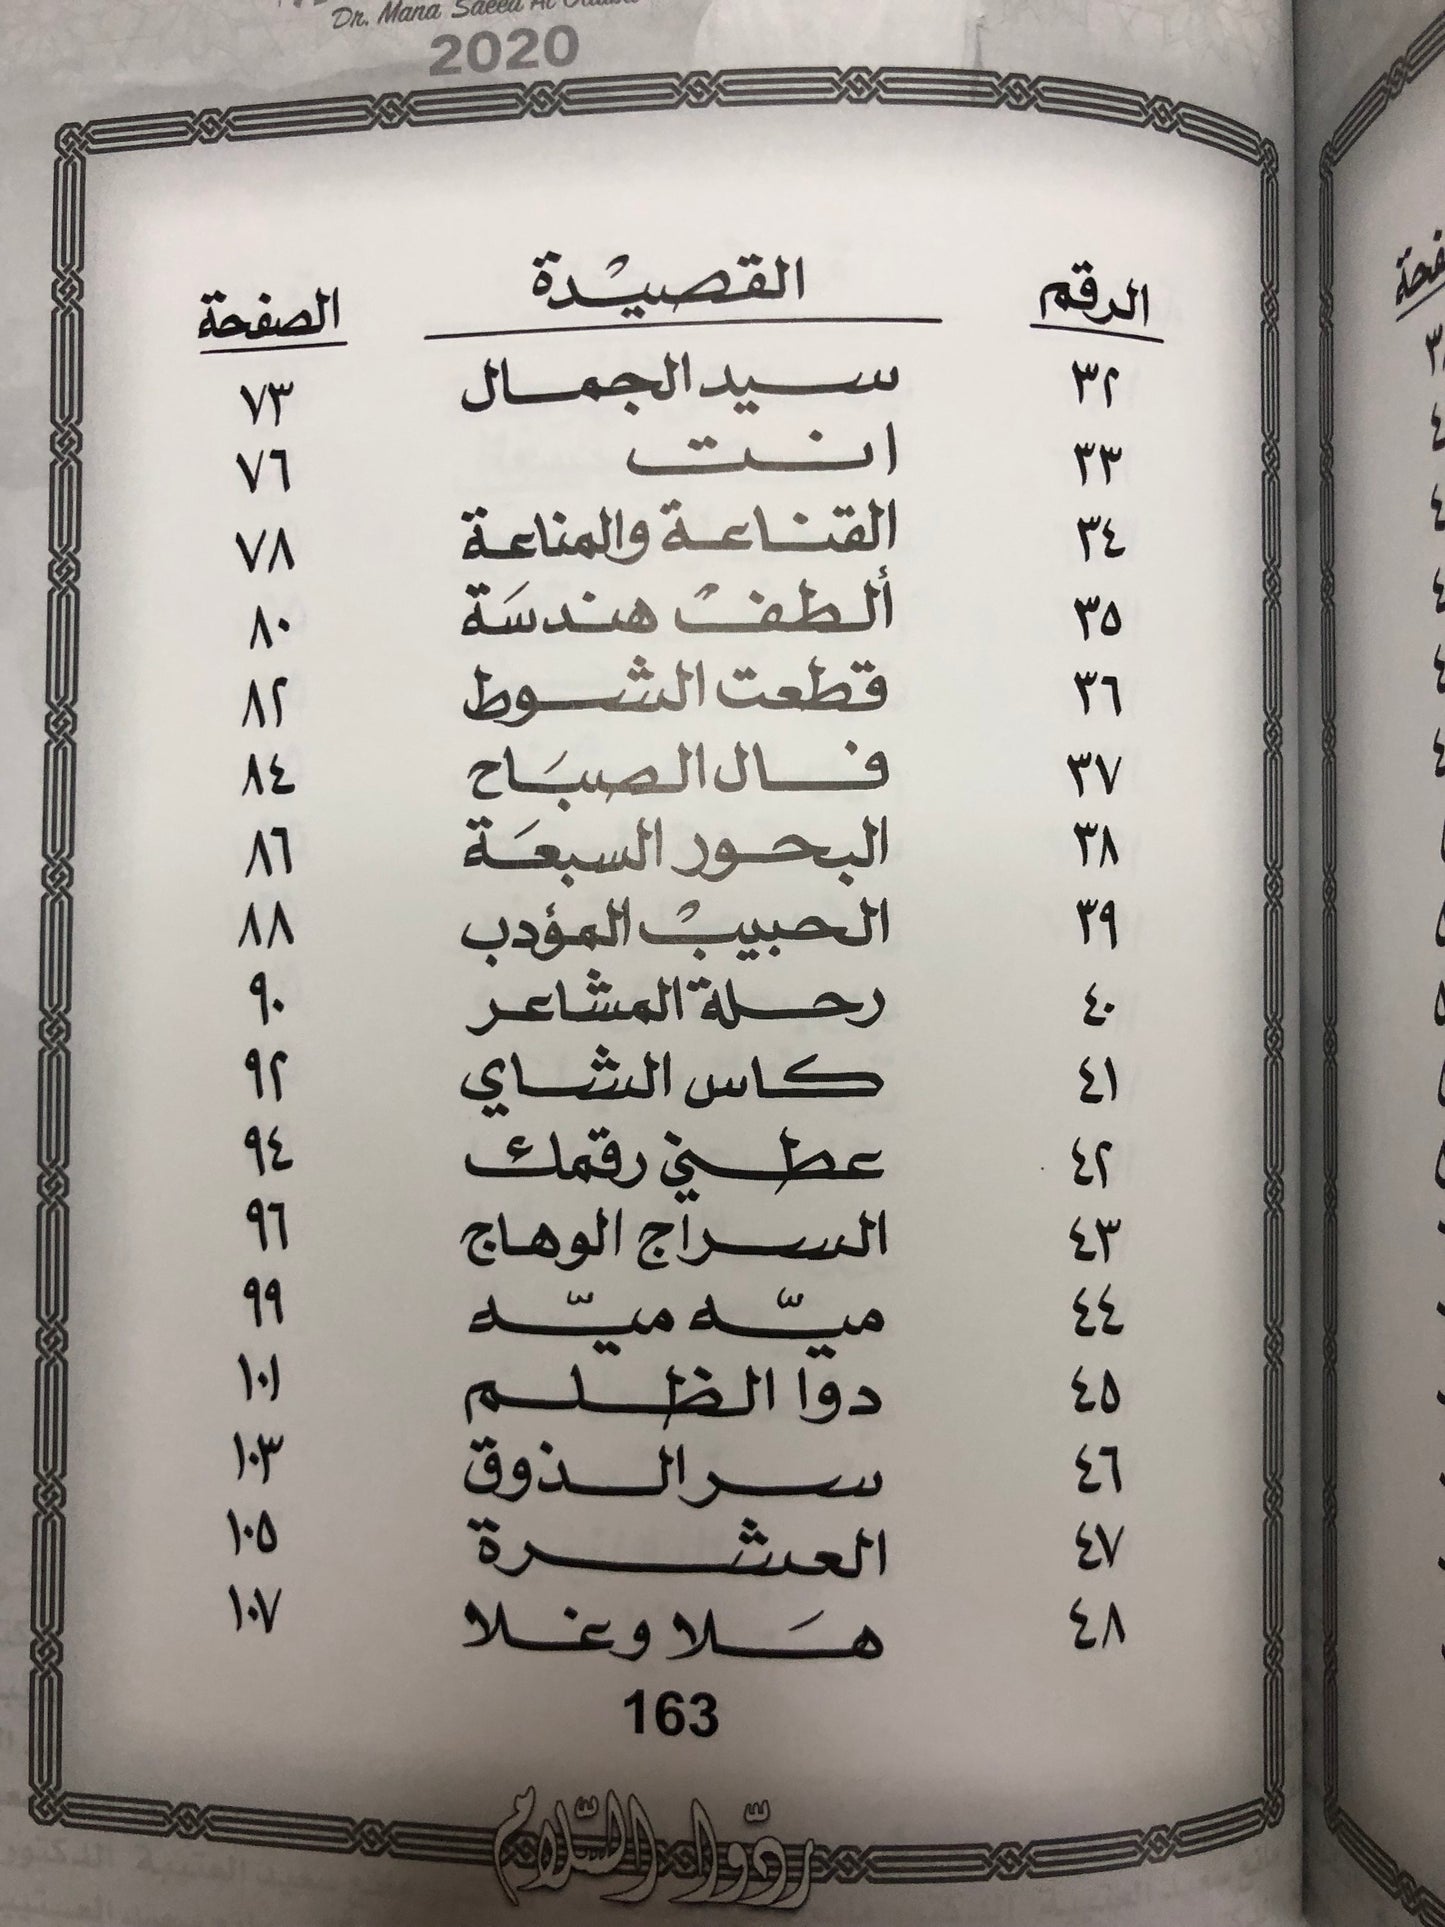 Dr. Mana Saeed Al Otaiba
2020
الرقم القصيْدة الصفحة
٣٢ سيد الجمال ٧٣
٣٣ انت ٧٦
٣٤ القناعة والمناعة ٧٨
٣٥ ألطفْ هندسَة ٨٠
٣٦ قطعت الشوط ٨٢
٣٧ فال الصبَاح ٨٤
٣٨ البحور السبعَة ٨٦
٣٩ الحبيبْ المؤدب ٨٨
٤٠ رحلة المشاعر ٩٠
٤١ كاس الشاي ٩٢
٤٢ عطني رقمك ٩٤
٤٣ السراج الوهاج ٩٦
٤٤ ميّه ميّه ٩٩
٤٥ دوا الظلم ١٠١
٤٦ سر الذوق ١٠٣
٤٧ العشرة ١٠٥
٤٨ هَلا وغلا ١٠٧
163
ردّوا السّلام